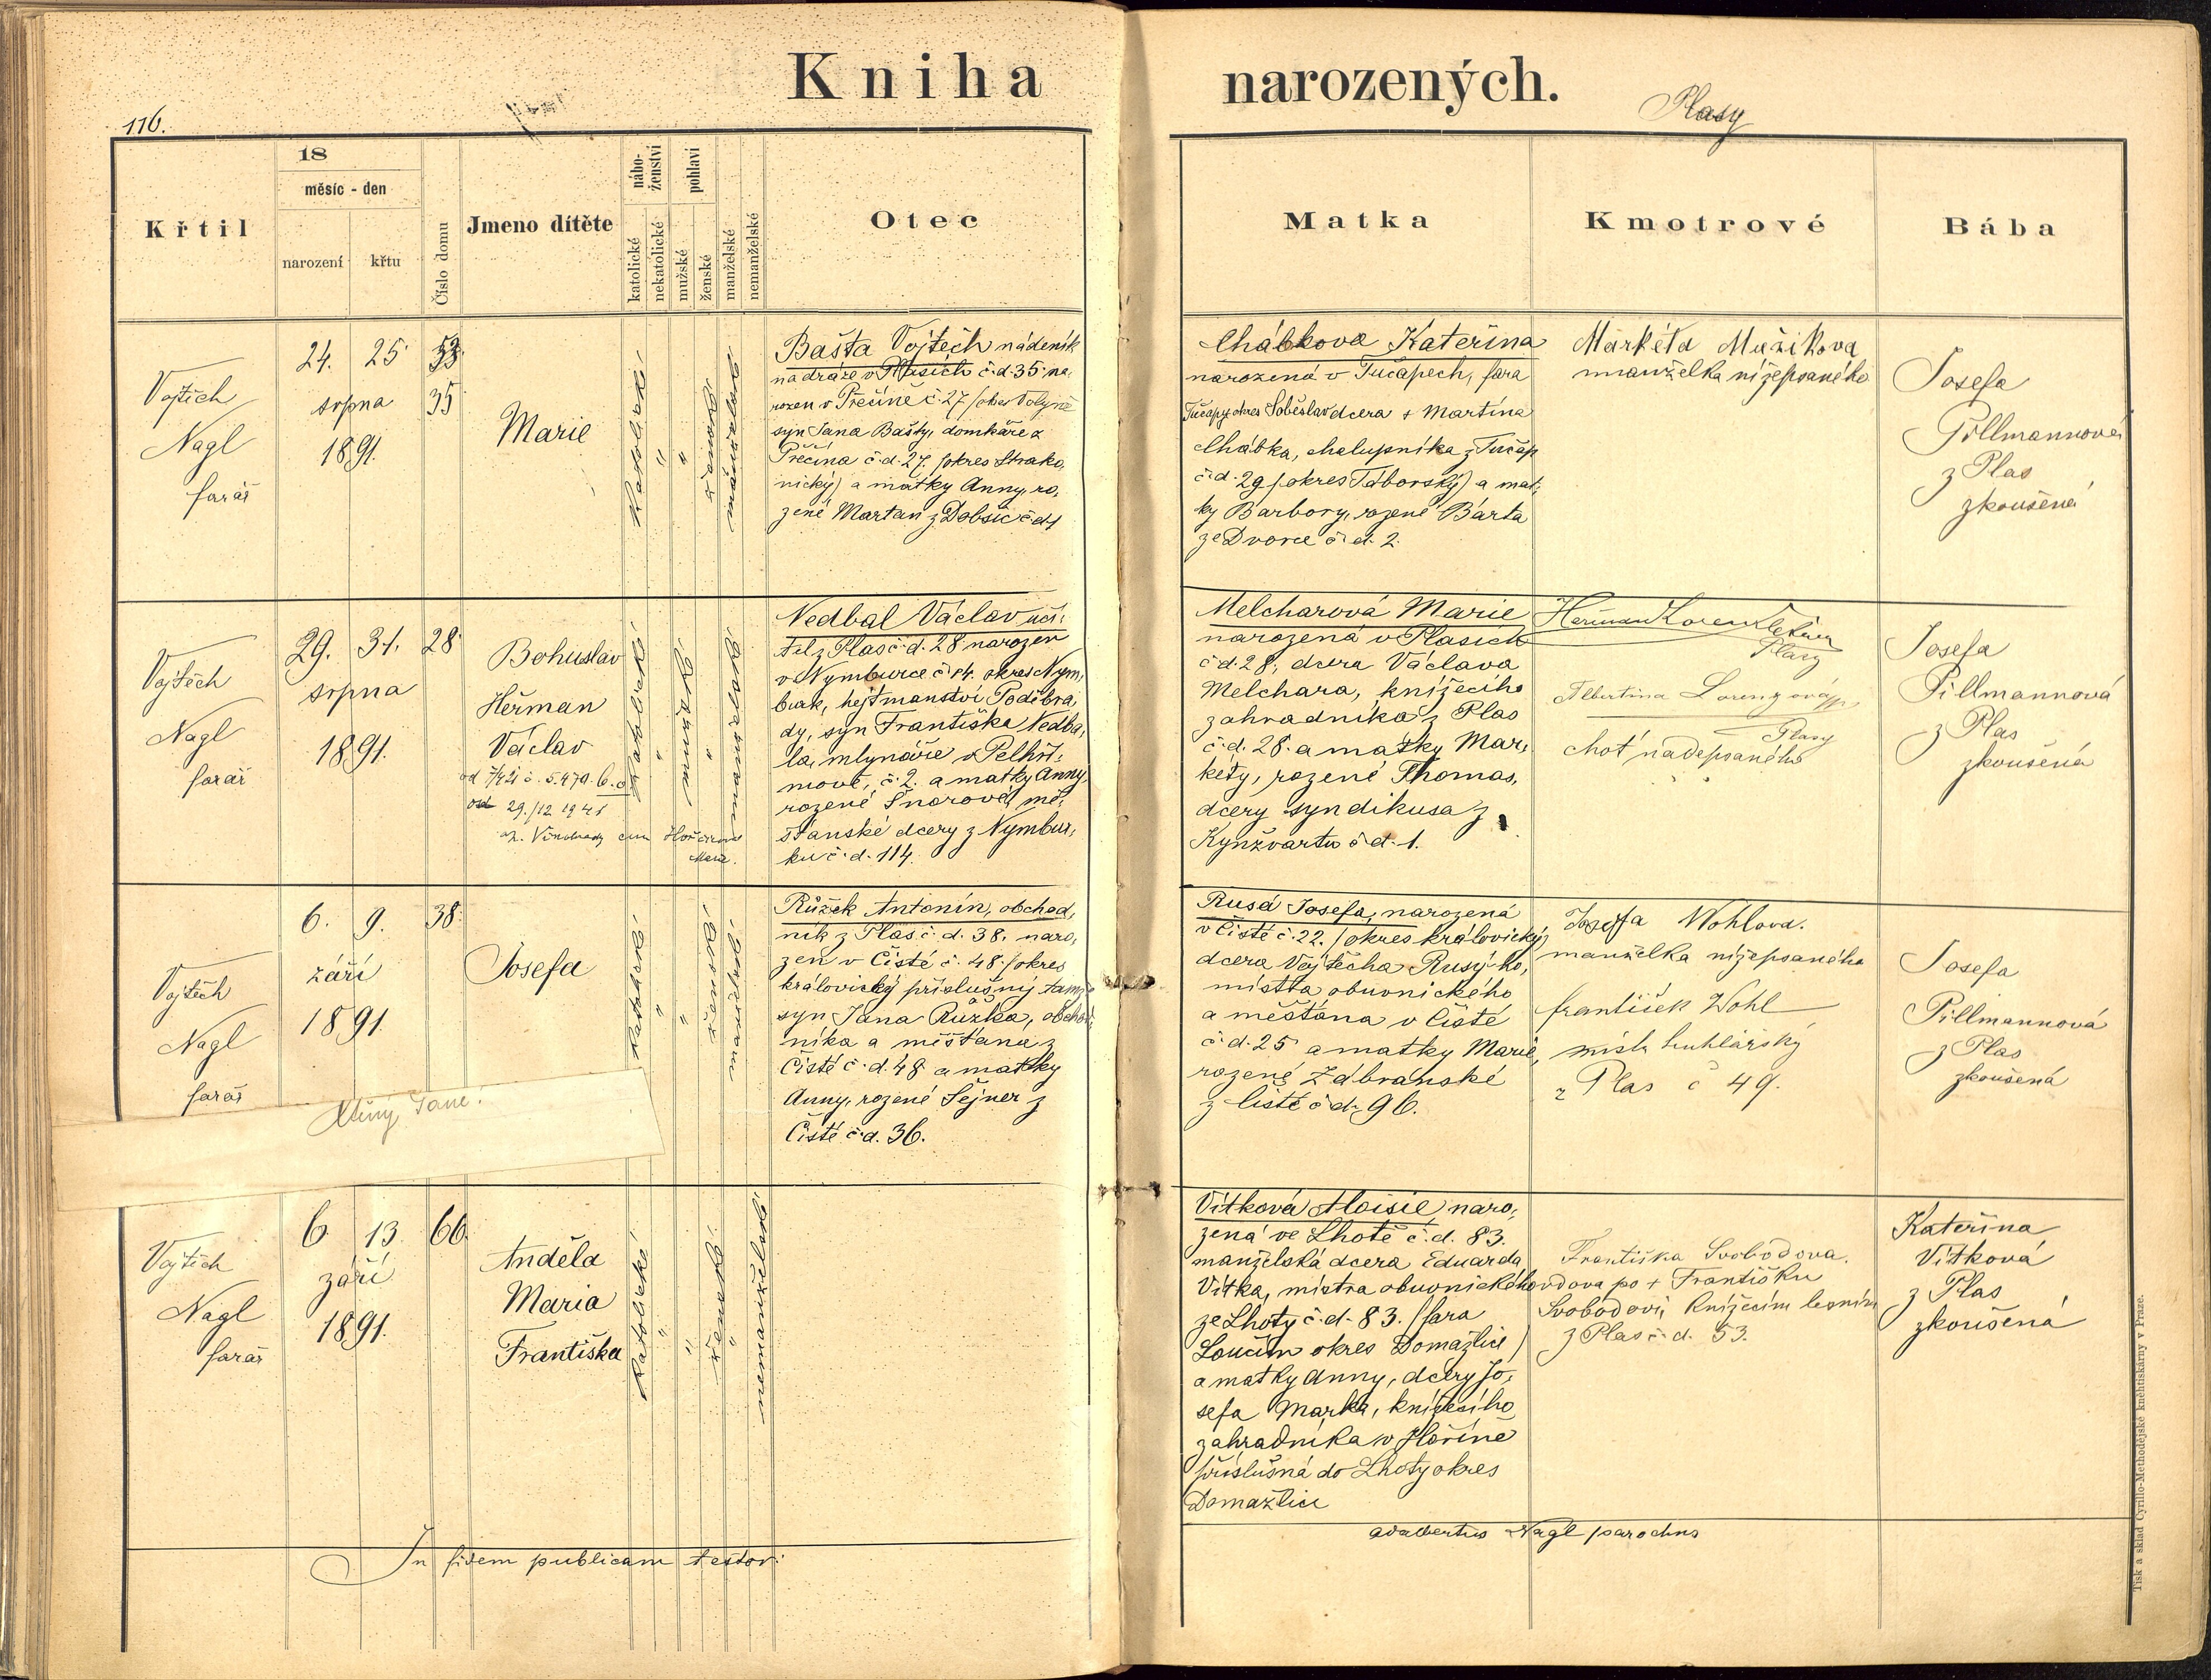 Kniha narozených.
116.
Plasy
Křtil
18
měsíc - den
narození
křtu
Číslo domu
Jmeno dítěte
nábo-
ženství
katolické
nekatolické
pohlaví
mužské
ženské
manželské
nemanželské
Otec
Matka
Kmotrové
Bába
Vojtěch
Nagl
farář
24. 25
srpna
1891.
53.
35
Marie
katolické
"
"
ženské
manželské
Bašta Vojtěch nádeník
na dráze v Plasích č.d. 35 na,
rozen v Přečíně č. 27 /okres Volyně
syn Jana Bašty, domkáře z
Přečína č.d. 27. /okres Strako,
nický) a matky Anny, ro,
zené Martan z Dobšic č.d 1
Chábkova Kateřina
narozená v Tučapech, fara
Tučapy okres Soběslav dcera + Martina
Chábka, chalupníka z Tučap
č.d. 29 /okres Táborský) a mat,
ky Barbory, rozené Bárta
ze Dvorce č.d. 2.
Markéta Mužíkova
manželka nížepsaného
Josefa
Pillmannová
z Plas
zkoušená
Vojtěch
Nagl
farář
29. 31.
srpna
1891.
28
Bohuslav
Heřman
Václav
29./12 1941
katolické
"
mužské
"
manželské
Nedbal Václav uči,
tel z Plas č.d. 28 narozen
v Nymburce č. 14. okres Nym,
burk, hejtmanství Poděbra,
dy, syn Františka Nedba,
la, mlynáře v Pelhři,
mově, č. 2. a matky Anny
rozené Šnorové, mě,
šťanské dcery z Nymbur,
ku č.d. 114.
Melcharová Marie
narozená v Plasích
č.d. 28, dcera Václava
Melchara, knížecího
zahradníka z Plas
č.d. 28. a matky Mar,
kety, rozené Thomas,
dcery syndikusa z
Kynžvartu č.d. 1.
Plasy
Albertina Lorenzová
Plasy
choť nadepsaného
Josefa
Pillmannová
z Plas
zkoušená
Vojtěch
Nagl
farář
6. 9.
září
1891.
38.
Josefa
katolické
"
"
ženské
manželské
Růžek Antonín, obchod,
ník z Plas č.d. 38. naro,
zen v Čisté č. 48. /okres
královický příslušný tamže
syn Jana Růžka, obchod,
níka a měšťana z
Čisté č.d. 48 a matky
Anny, rozené Šejner z
Čisté č.d. 36.
Rusá Josefa, narozená
v Čisté č. 22. /okres královický,
dcera Vojtěcha Rusýho,
mistra obuvnického
a měšťana v Čisté
č.d. 25 a matky Marie,
rozené Zábranské
z Čisté č.d. 96.
Josefa Wohlova.
manželka nížepsaného
František Wohl
mistr truhlářský
z Plas č 49.
Josefa
Pillmannová
z Plas
zkoušená
Jane.
Vojtěch
Nagl
farář
6. 13
září
1891.
66.
Anděla
Maria
Františka
katolické
"
"
ženské
"
nemanželské
Vítková Aloisie naro,
zená ve Lhotě č.d. 83.
manželská dcera Eduarda
Vítka, mistra obuvnického
ze Lhoty č.d. 83. /fara
Loučim okres Domažlice)
a matky Anny, dcery Jo,
sefa Marka, knížecího
zahradníka v Hoříně
příslušná do Lhoty okres
Domažlice
Františka Svobodova.
vdova po + Františku
Svobodovi, knížecím lesním
z Plas č.d. 53.
Kateřina
Vítková
z Plas
zkoušená
In fidem publicam testor:
Adalbertus Nagl parochus
Tisk a sklad Cyrillo-Methodějské knihtiskárny v Praze.